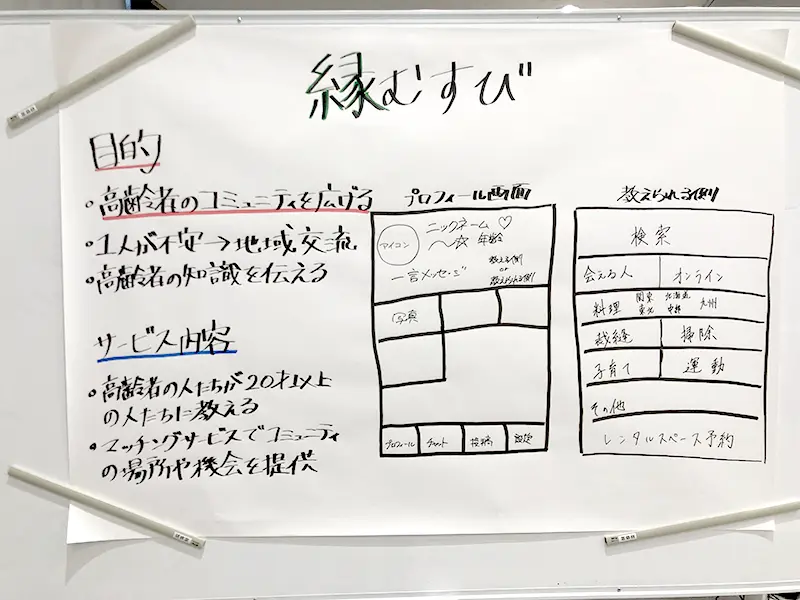 縁むすび
目的
・高齢者のコミュニティを広げる
・1人が不安→地域交流
・高齢者の知識を伝える
サービス内容
・高齢者の人たちが20才以上
の人たちに教える
・マッチングサービスでコミュニティ
の場所や機会を提供
プロフィール画面
アイコン
ニックネーム♡
年齢
一言メッセージ
教える側
or
教えられる側
写真
プロフィール
チャット
投稿
設定
教えられる側
検索
会える人
オンライン
料理
関東
北海道
東北
中部
九州
裁縫
掃除
子育て
運動
その他
レンタルスペース予約